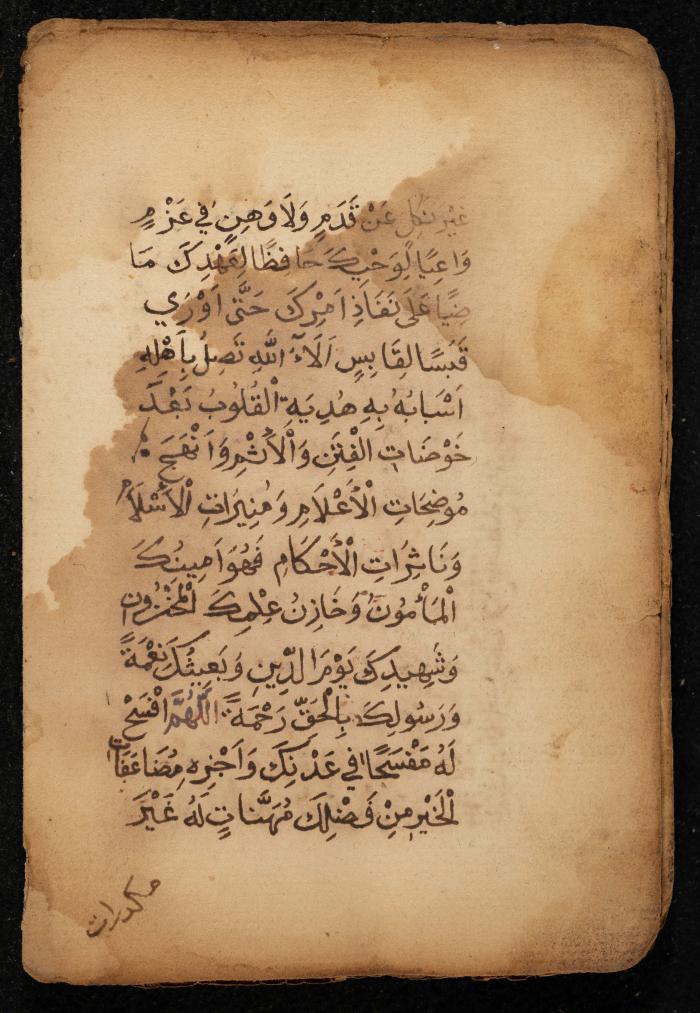 غَيْرِ نَكِلٍ عَنْ قَدَمٍ وَلَا وَهِنٍ فِي عَزْمٍ
وَاعِيًا لِوَحْيِكَ حَافِظًا لِعَهْدِكَ مَا
ضِيًا عَلَى نَفَاذِ اَمْرِكَ حَتَّى اَوْرَي
قَبَسًا لِقَابِسٍ اَلَاءُ اللّٰهِ تَصِلُ بِاَهْلِهِ
اَسْبَابُهُ بِهِ هُدِيَةِ الْقُلُوبُ بَعْدَ
خَوْضَاتِ الْفِتَنِ وَالْأِثْمِ وَاَنْهَجَ
مُوضِحَاتِ الْأَعْلَامِ وَمُنِيرَاتِ الْأَسْلَامْ
وَنَاثِرَاتِ الْأَحْكَامِ فَهُوَ اَمِينُكَ
الْمَأْمُونُ وَخَازِنُ عِلْمِكَ الْمَخْزُونِ
وَشَهِيدِكَ يَوْمَ الدِّينِ وَبَعِيثُكَ نِعْمَةً
وَرَسُولِكَ بِالْحَقِّ رَحْمَةً اللّٰهُمَّ افْسَحْ
لَهُ مَفْسَحًا فِي عَدْنِكَ وَاَجْزِهِ مُضَاعَفَاتِ
الْخَيْرِ مِنْ فَضْلِكَ مُهَنَّاتٍ لَهُ غَيْرَ
مكدرات